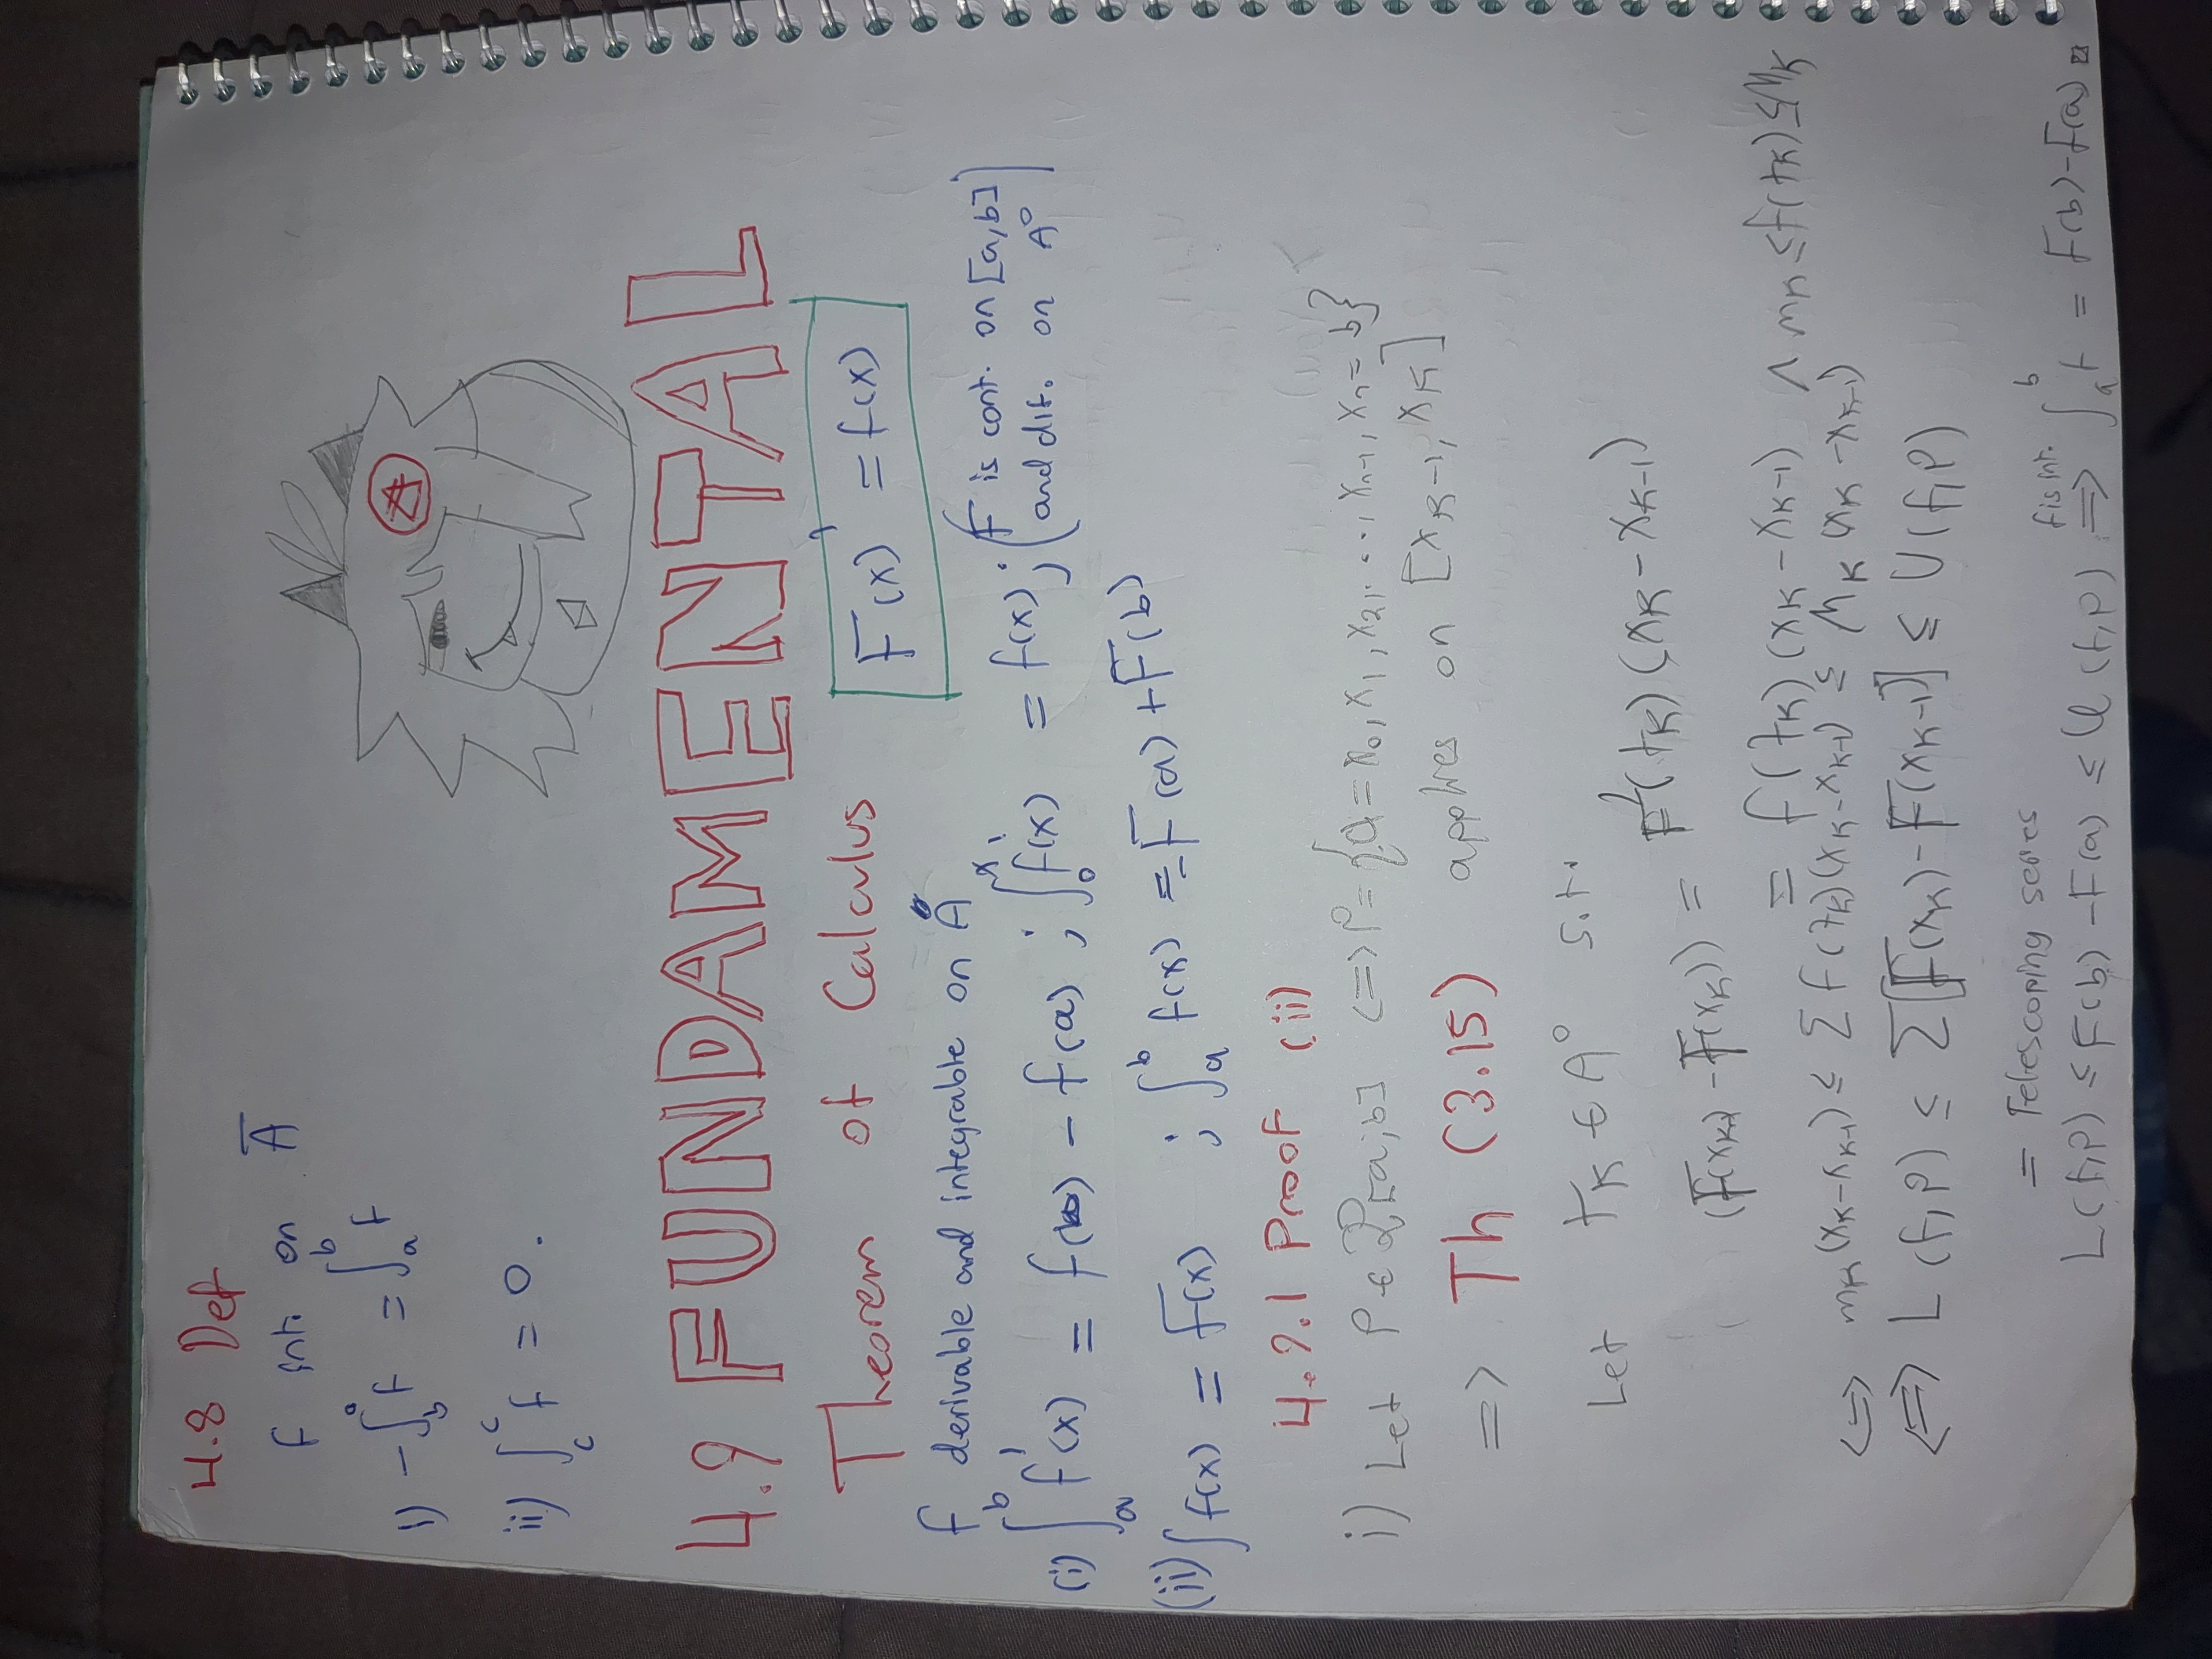 4.8 Def
f int. on A̅
i) -∫_b^a f = ∫_a^b f
ii) ∫_c^c f = 0.
4.9 FUNDAMENTAL
Theorem of Calculus
F(x)' = f(x)
f derivable and integrable on A°
(i) ∫_a^b f'(x) = f(b) - f(a) ; ∫_0^x f'(x) = f(x) ; (F is cont. on [a,b] and dif. on A°)
(ii) ∫f(x) = F(x) ; ∫_a^b f(x) = -F(a) + F(b)
4.9.1 Proof (ii)
i) Let P ∈ P[a,b] <=> P = {a = x₀, x₁, x₂, ..., xₙ₋₁, xₙ = b}
=> Th (3.15) applies on [x_K-1, x_K]
Let t_K ∈ A° s.t.
(F(x_K) - F(x_K)) = F'(t_K)(x_K - x_K-1)
= f(t_K)(x_K - x_K-1) ∧ m_K ≤ f(t_K) ≤ M_K
<=> m_K(x_K - x_K-1) ≤ Σ f(t_K)(x_K - x_K-1) ≤ M_K(x_K - x_K-1)
<=> L(f,P) ≤ Σ[F(x_K) - F(x_K-1)] ≤ U(f,P)
= Telescoping series
L(f,P) ≤ F(b) - F(a) ≤ U(f,P) =>^{f is int.} ∫_a^b f = F(b) - F(a) □